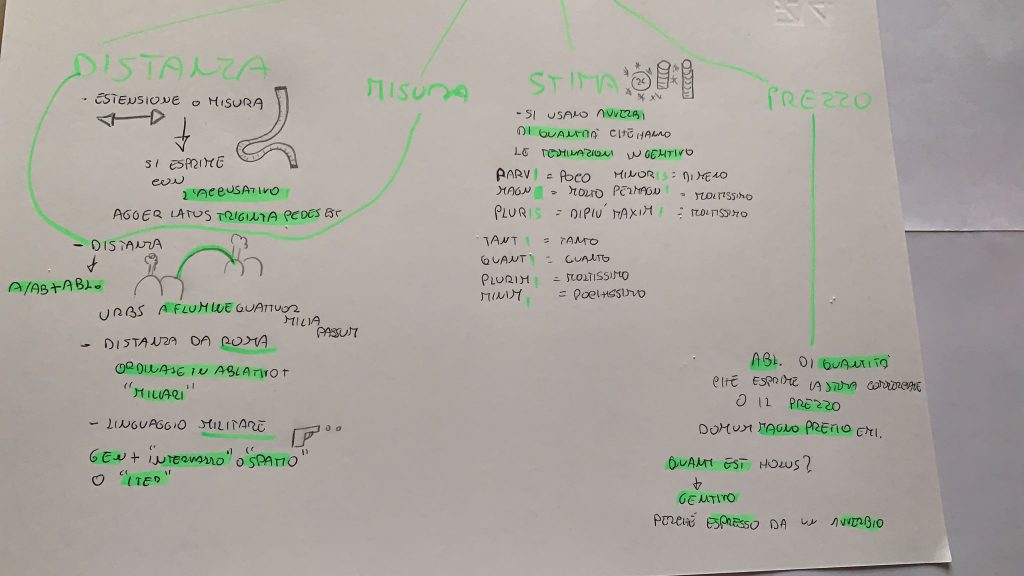 DISTANZA
· ESTENSIONE O MISURA
SI ESPRIME
CON
L'ACCUSATIVO
AGGER LATUS TRIGINTA PEDES EST
- DISTANZA
A/AB+ABL.
URBS A FLUMINE QUATTUOR
MILIA
PASSUM
- DISTANZA DA ROMA
ORDINALE IN ABLATIVO +
"MILIARI"
- LINGUAGGIO MILITARE
GEN + "INTERVALLO" O "SPATIO"
O "ITER"
MISURA
STIMA
- SI USANO AVVERBI
DI QUANTITÀ CHE HANNO
LE TERMINAZIONI IN GENITIVO
PARVI = POCO MINORIS = DI MENO
MAGNI = MOLTO PERMAGNI = MOLTISSIMO
PLURIS = DI PIÙ MAXIMI = MOLTISSIMO
TANTI = TANTO
QUANTI = QUANTO
PLURIMI = MOLTISSIMO
MINIMI = POCHISSIMO
PREZZO
ABL. DI QUANTITÀ
CHE ESPRIME LA STIMA COMMERCIALE
O IL PREZZO
DOMUM MAGNO PRETIO EMI.
QUANTI EST HORUS?
GENITIVO
PERCHÉ ESPRESSO DA UN AVVERBIO